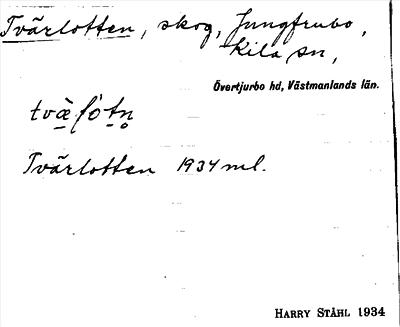 Tvärlotten, skog, Jungfrubo,
Kila sn,
Övertjurbo hd, Västmanlands län.
Tvärlotten 1934 ml.
HARRY STÅHL 1934